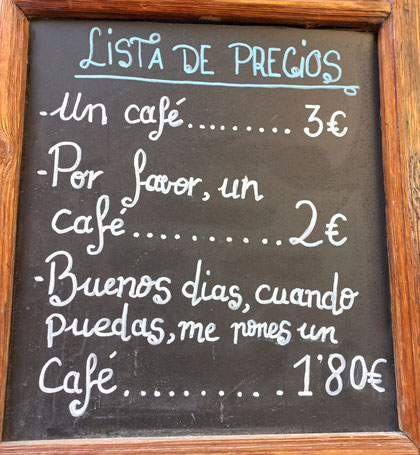 LISTA DE PRECIOS
-Un café......... 3€
-Por favor, un
café.......... 2€
-Buenos dias, cuando
puedas, me pones un
Café.......... 1'80€